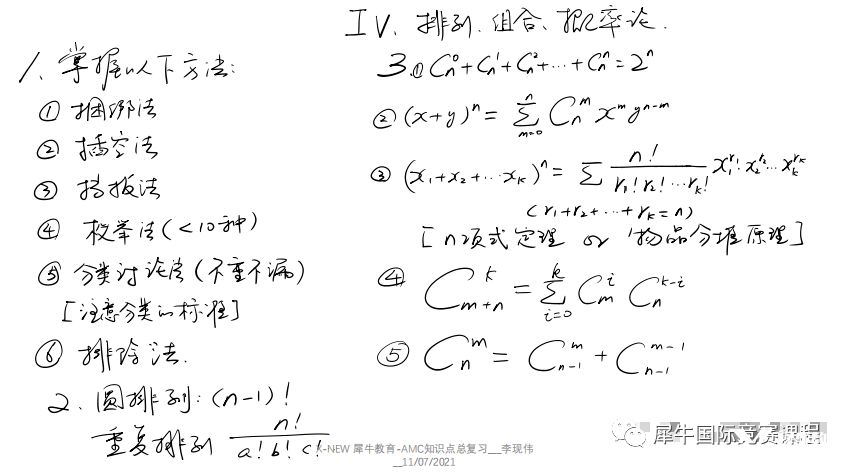 IV、排列、组合、概率论.
1、掌握以下方法:
① 捆绑法
② 插空法
③ 挡板法
④ 枚举法(<10种)
⑤ 分类讨论法(不重不漏)
[注意分类的标准]
⑥ 排除法.
2、圆排列:(n-1)!
重复排列 n!/(a!b!c!)
3.① C_n^0+C_n^1+C_n^2+…+C_n^n=2^n
② (x+y)^n = ∑_{m=0}^{n} C_n^m x^m y^{n-m}
③ (x_1+x_2+…x_k)^n = ∑ n!/(r_1!r_2!…r_k!) x_1^{r_1}·x_2^{r_2}…x_k^{r_k}
(r_1+r_2+…+r_k=n)
[n项式定理 or 物品分堆原理]
④ C_{m+n}^k = ∑_{i=0}^{k} C_m^i C_n^{k-i}
⑤ C_n^m = C_{n-1}^m + C_{n-1}^{m-1}
X-NEW 犀牛教育-AMC知识点总复习__李现伟
__11/07/2021
犀牛国际竞赛课程